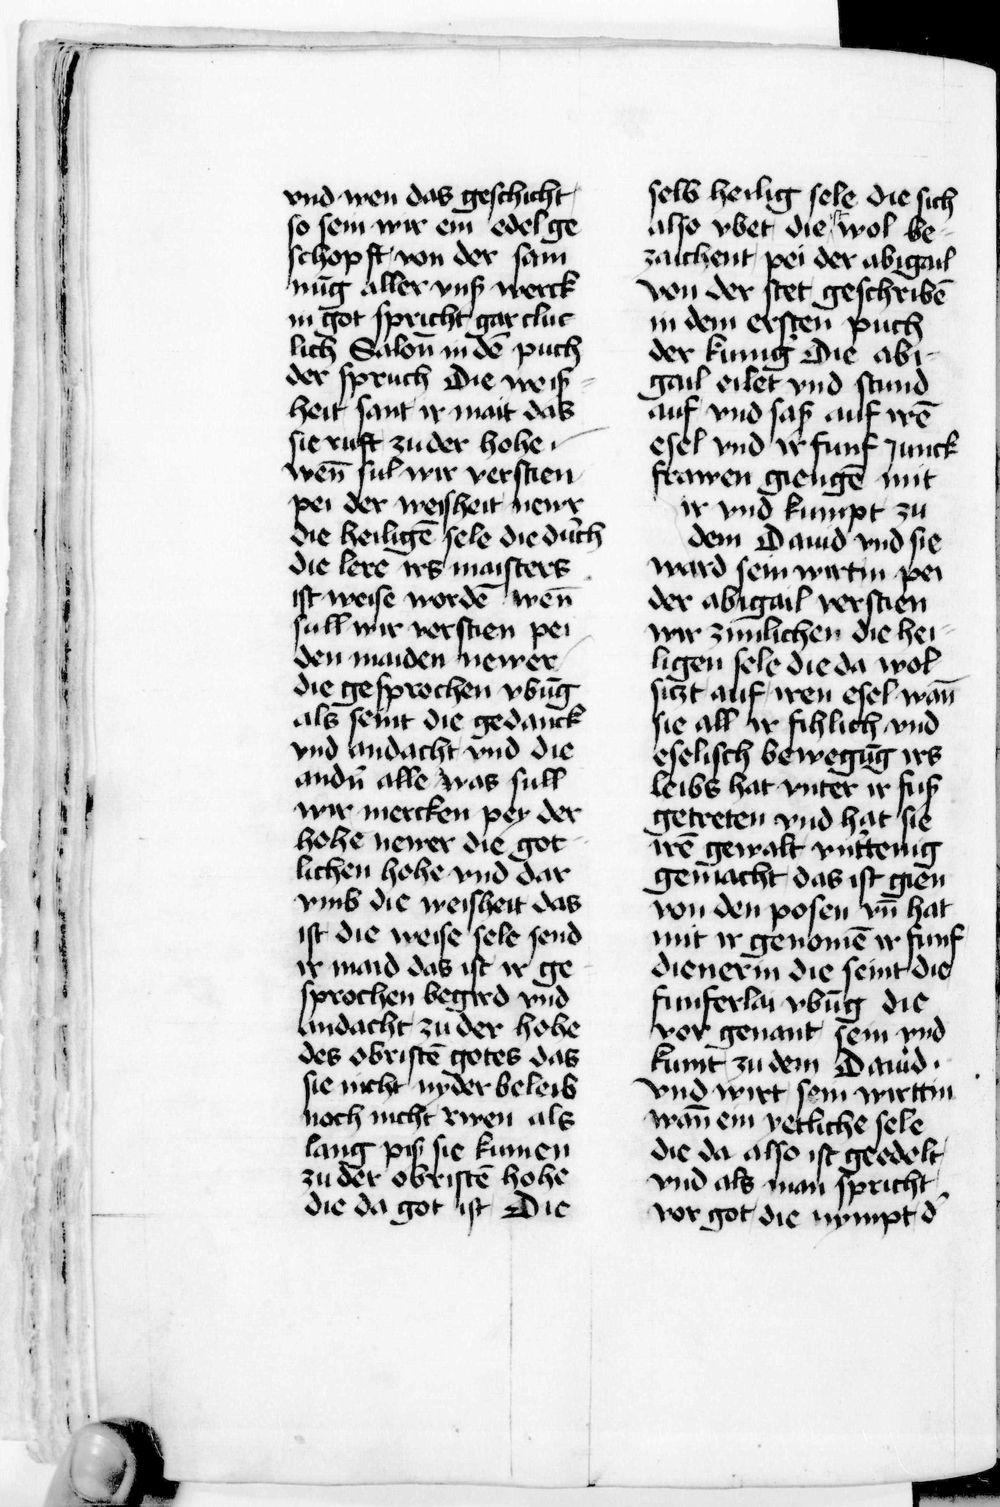 vnd wen das geschicht
so sein wir ein edel ge
schopft von der sam
nūg aller vnß werck
in got spricht gar clue
lich Salōn in dē puch
der spruch Die weiß-
heit sant ir mait das
sie ruft zu der hohe
wen̄ sul wir versten
pei der weisheit newr
die heiligē sele die durch
die lere irs maisters
ist weise wordē wen̄
sull wir versten pei
den maiden newer
die gesprochen vbūg
als seint die gedanck
vnd andacht vnd die
andn̄ alle was sull
wir mercken pey der
hohe newer die got
lichen hohe vnd dar
vmb die weisheit das
ist die weise sele send
ir maid das ist ir ge-
sprochen begird vnd
andacht zu der hohe
des obristē gotes das
sie nicht nyder beleib
noch nicht rwen als
lang piß sie kumen
zu der obristē hohe
die da got ist Die
selb heilig sele die sich
also vbet die wol be-
zaichent pei der abigail
von der stet geschribē
in dem ersten puch
der kunig Die abi-
gail eilet vnd stund
auf vnd saß auf irē
esel vnd ir funf Junck
frawen giengē mit
ir vnd kumpt zu
dem Dauid vnd sie
ward sein wirtin pei
der abigail versten
wir zimlichen die hei-
ligen sele die da wol
sitzt auf iren esel wan̄
sie all ir fihlich vnd
eselisch bewegūg irs
leibs hat vnter ir fuß
getreten vnd hat sie
irē gewalt vntt̄enig
gemacht das ist gien
von den posen vn̄ hat
mit ir genomē ir funf
dienerin die seint die
funferlai vbūg die
vor genant sein vnd
kumt zu dem Dauid.
vnd wirt sein wirttin
wan̄ ein yetliche sele
die da also ist geedelt
vnd als man spricht
vor got die nympt d̄